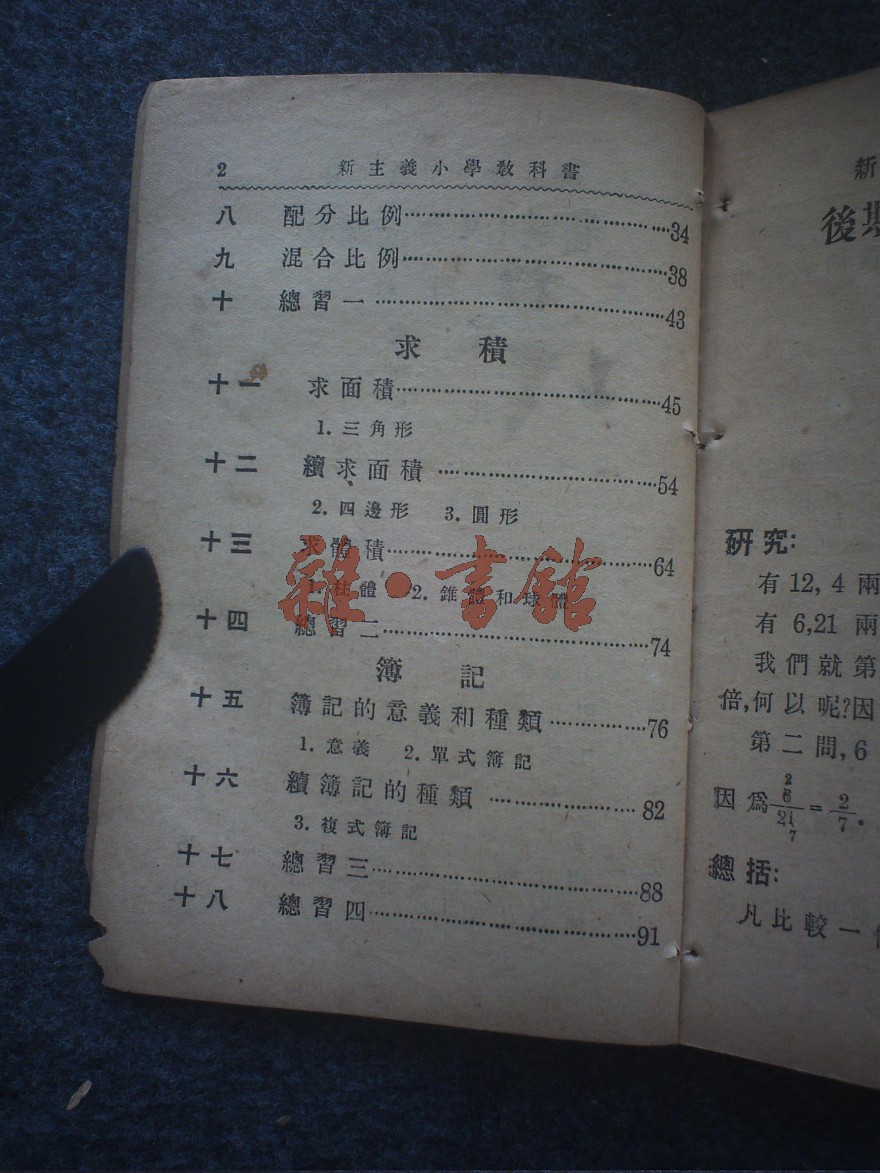 2 新主義小學教科書
八 配分比例……34
九 混合比例……38
十 總習一……43
求積
十一 求面積……45
1. 三角形
十二 續求面積……54
2. 四邊形 3. 圓形
十三 求體積……64
1. 柱體 2. 錐體和球體
十四 總習二……74
簿記
十五 簿記的意義和種類……76
1. 意義 2. 單式簿記
十六 續簿記的種類……82
3. 複式簿記
十七 總習三……88
十八 總習四……91
雜·書館
新
後期
研究:
有 12, 4 兩
有 6,21 兩
我們就第
倍,何以呢?因
第二問, 6
因爲 6/21 = 2/7.
2
7
總括:
凡比較一